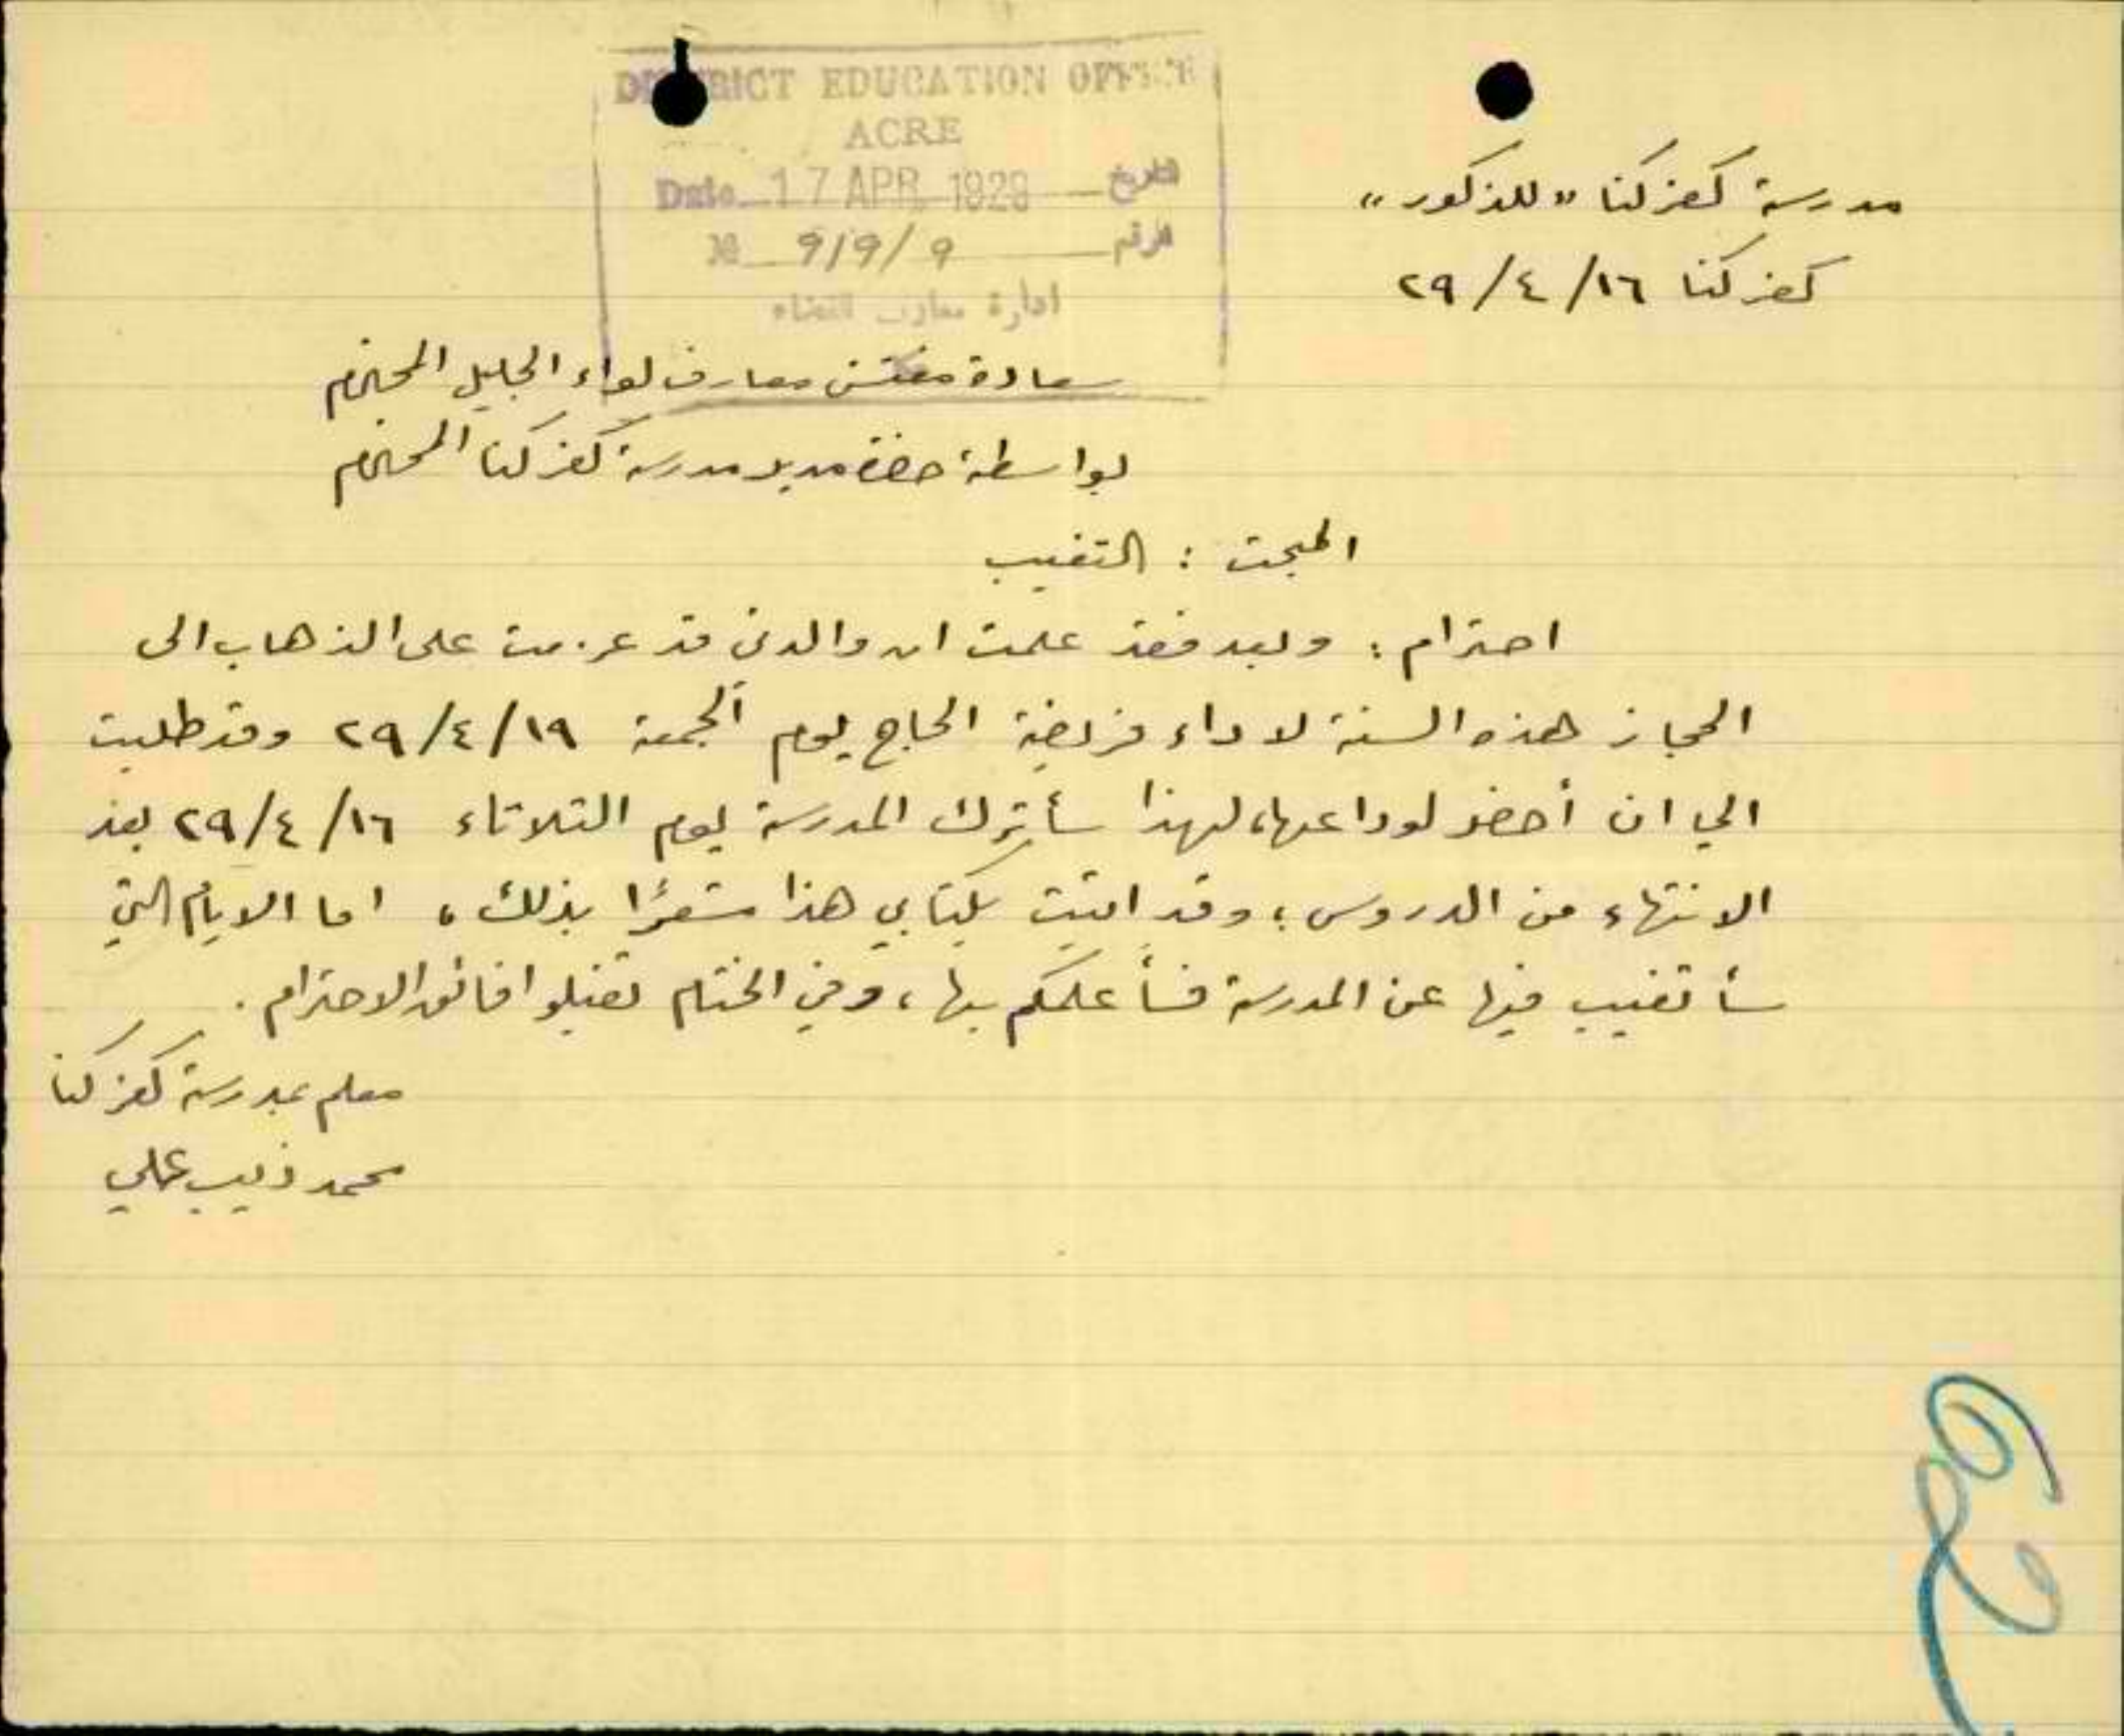 DISTRICT EDUCATION OFFICE
ACRE
Date 17 APR 1929 التاريخ
№ 9/9/9 الرقم
ادارة معارف القضاء
مدرسة كفركنا "للذكور"
كفركنا ١٦/٤/٢٩
سعادة مفتش معارف لواء الجليل المحترم
بواسطة حضرة مدير مدرسة كفركنا المحترم
المبحث : التغيب
احترام : وبعد فقد علمت ان والدتي قد عزمت على الذهاب الى
الحجاز هذه السنة لاداء فريضة الحاج يوم الجمعة ١٩/٤/٢٩ وقد طلبت
الي ان أحضر لوداعها، لهذا سأترك المدرسة يوم الثلاثاء ١٦/٤/٢٩ بعد
الانتهاء من الدروس؛ وقد اتيت بكتابي هذا مشعرًا بذلك، اما الايام التي
سأتغيب فيها عن المدرسة فسأعلمكم بها، وفي الختام تقبلوا فائق الاحترام.
معلم بمدرسة كفركنا
محمد ذيب علي
62